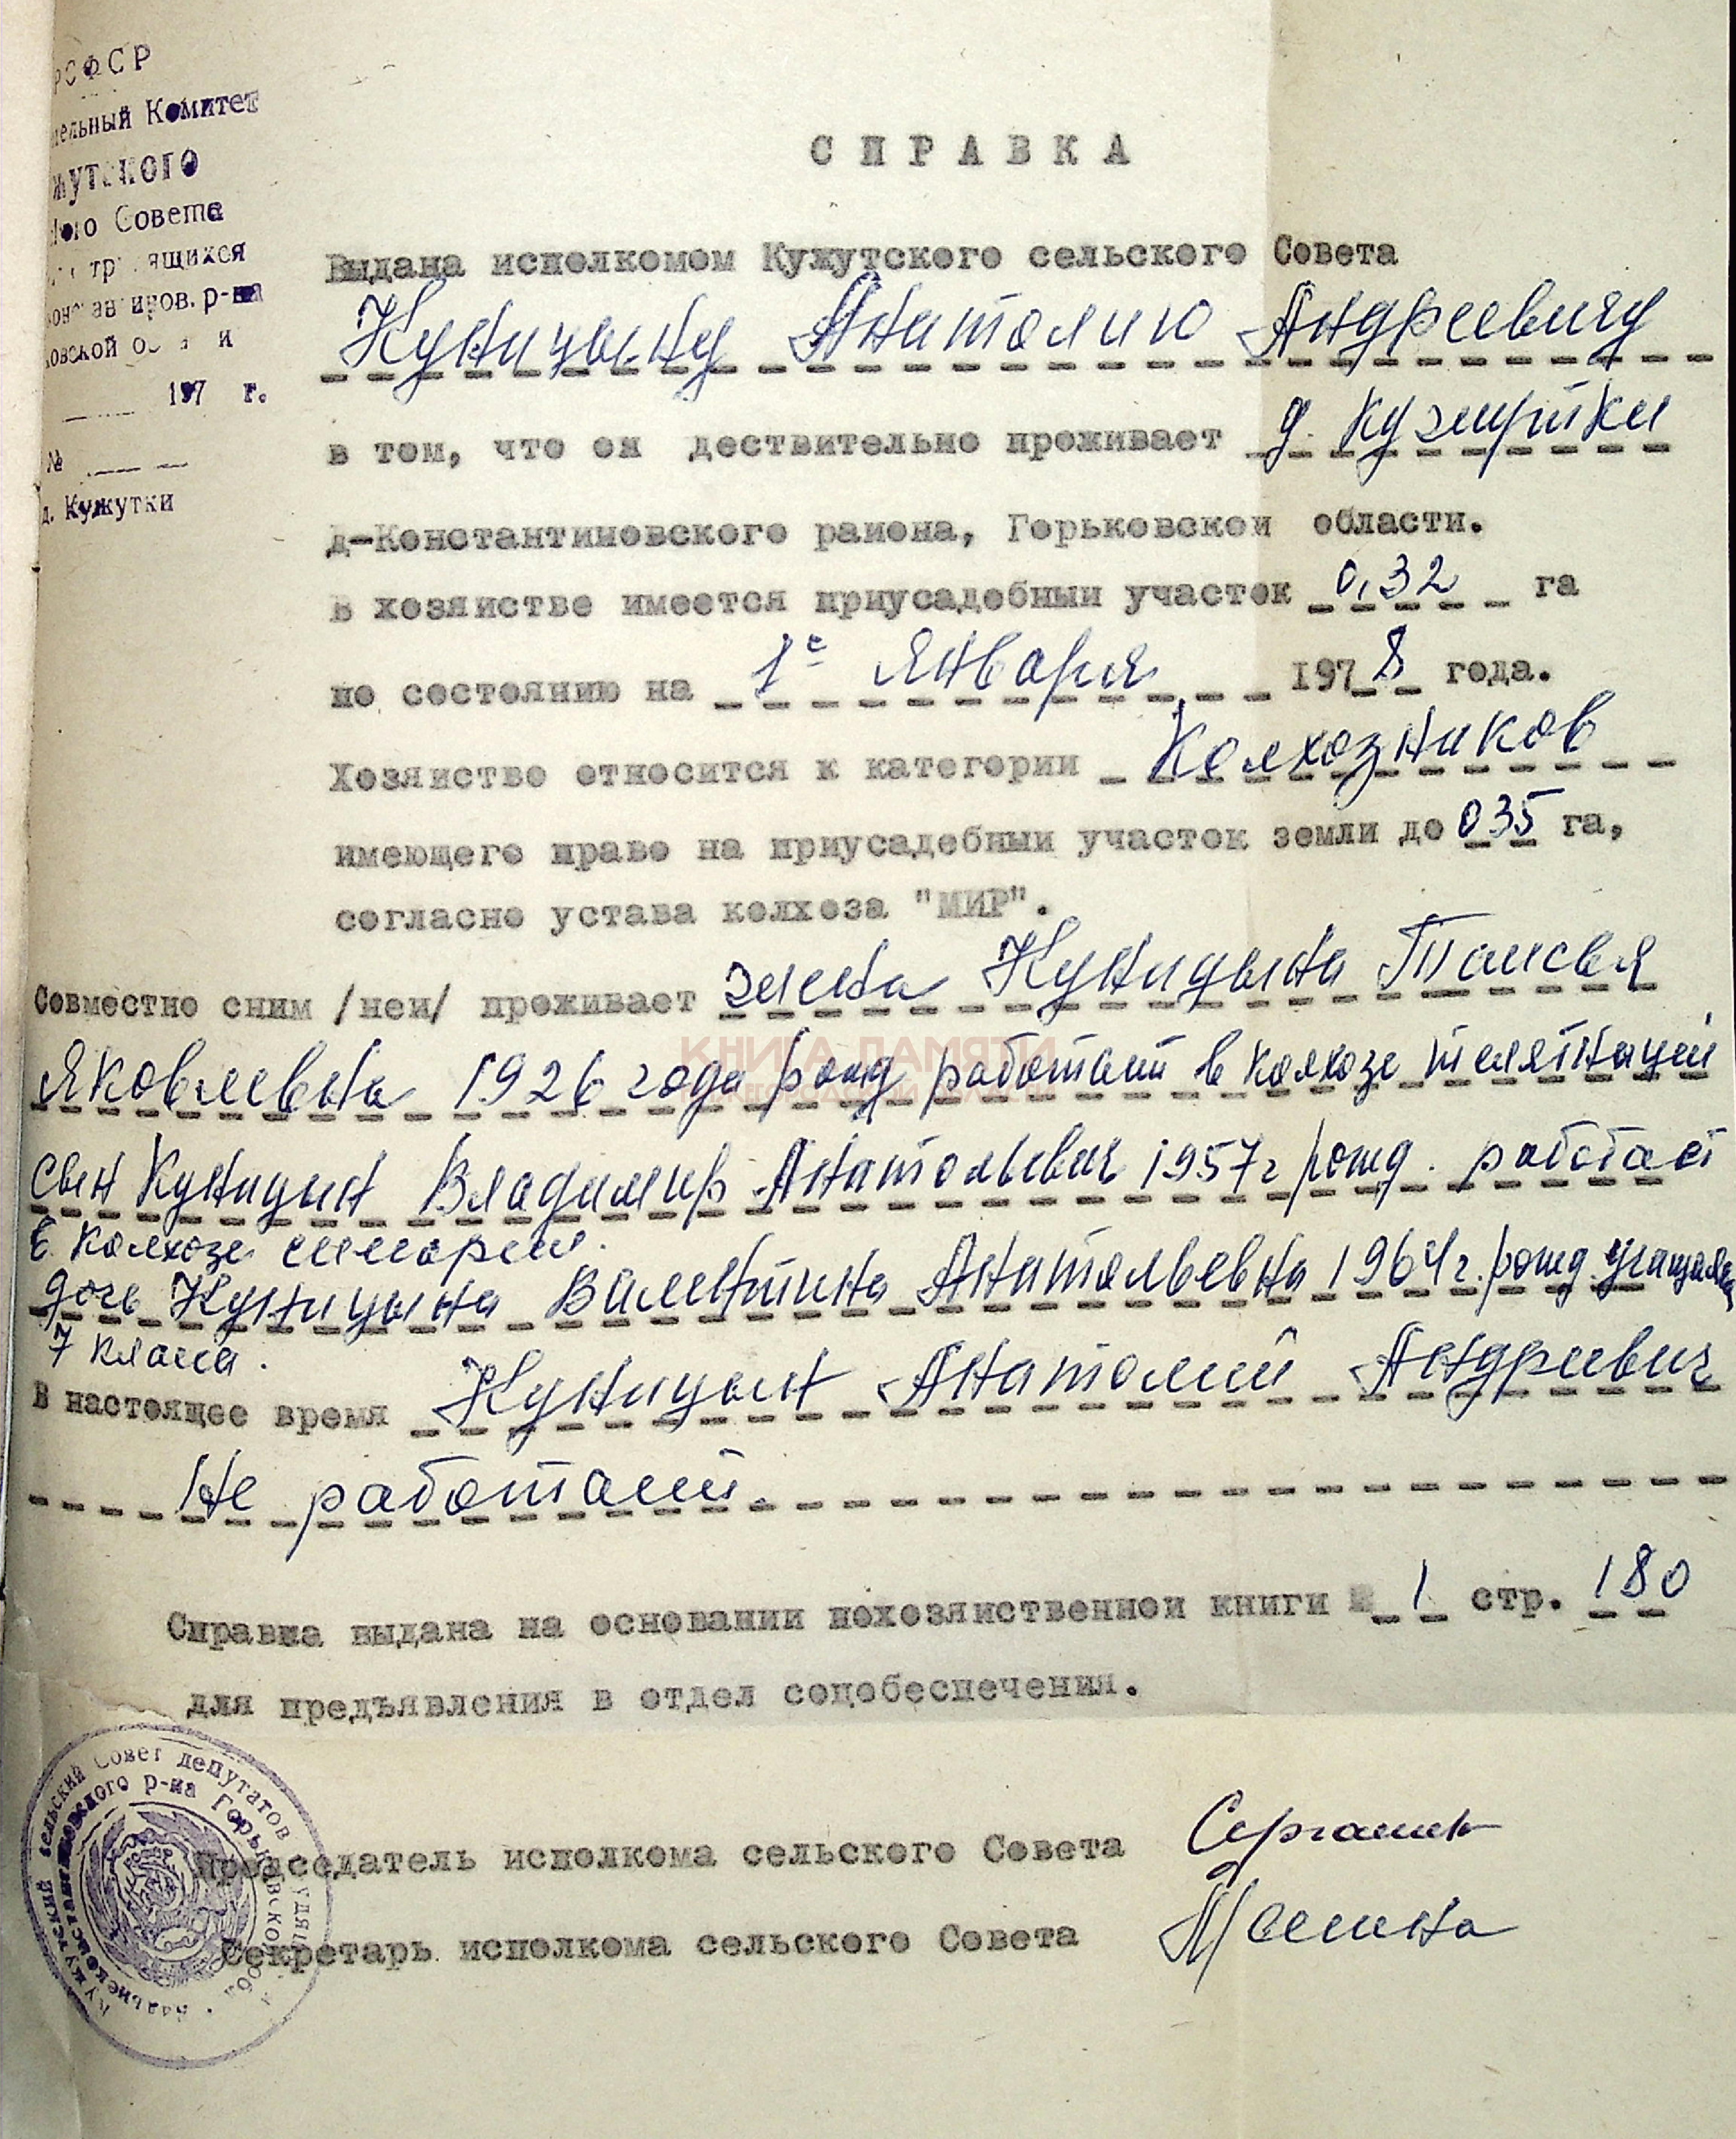 РСФСР
тельный Комитет
жутского
ного Совета
трудящихся
константинов. р-на
ковской области
197 г.
№
д. Кужутки
СПРАВКА
Выдана исполкомом Кужутского сельского Совета
Куницыну Анатолию Андреевичу
в том, что он дествительно проживает д.
д-Константиновского района, Горьковской области.
В хозяйстве имеется приусадебный участок 0,32 га
по состоянию на 1е января 1978 года.
Хозяйство относится к категории Колхозников
имеющего право на приусадебный участок земли до 035 га,
согласно устава колхоза "МИР".
Совместно сним /ней/ проживает жена Куницына Таисья
КНИГА ПАМЯТИ
Яковлевна 1926 года рожд работает в колхозе телятницей
сын Куницын Владимир Анатольевич 1957г рожд. работает
в колхозе
дочь Куницына Валентина Анатольевна 1964г. рожд. учащаяся
7 класса.
В настоящее время Куницын Анатолий Андреевич
Не работает.
Справка выдана на основании похозяйственной книги № 1 стр. 180
для предъявления в отдел соцобеспечения.
Кужутский сельский Совет депутатов трудящихся
Дальнеконстантиновского р-на Горьковской обл.
Председатель исполкома сельского Совета
Секретарь исполкома сельского Совета